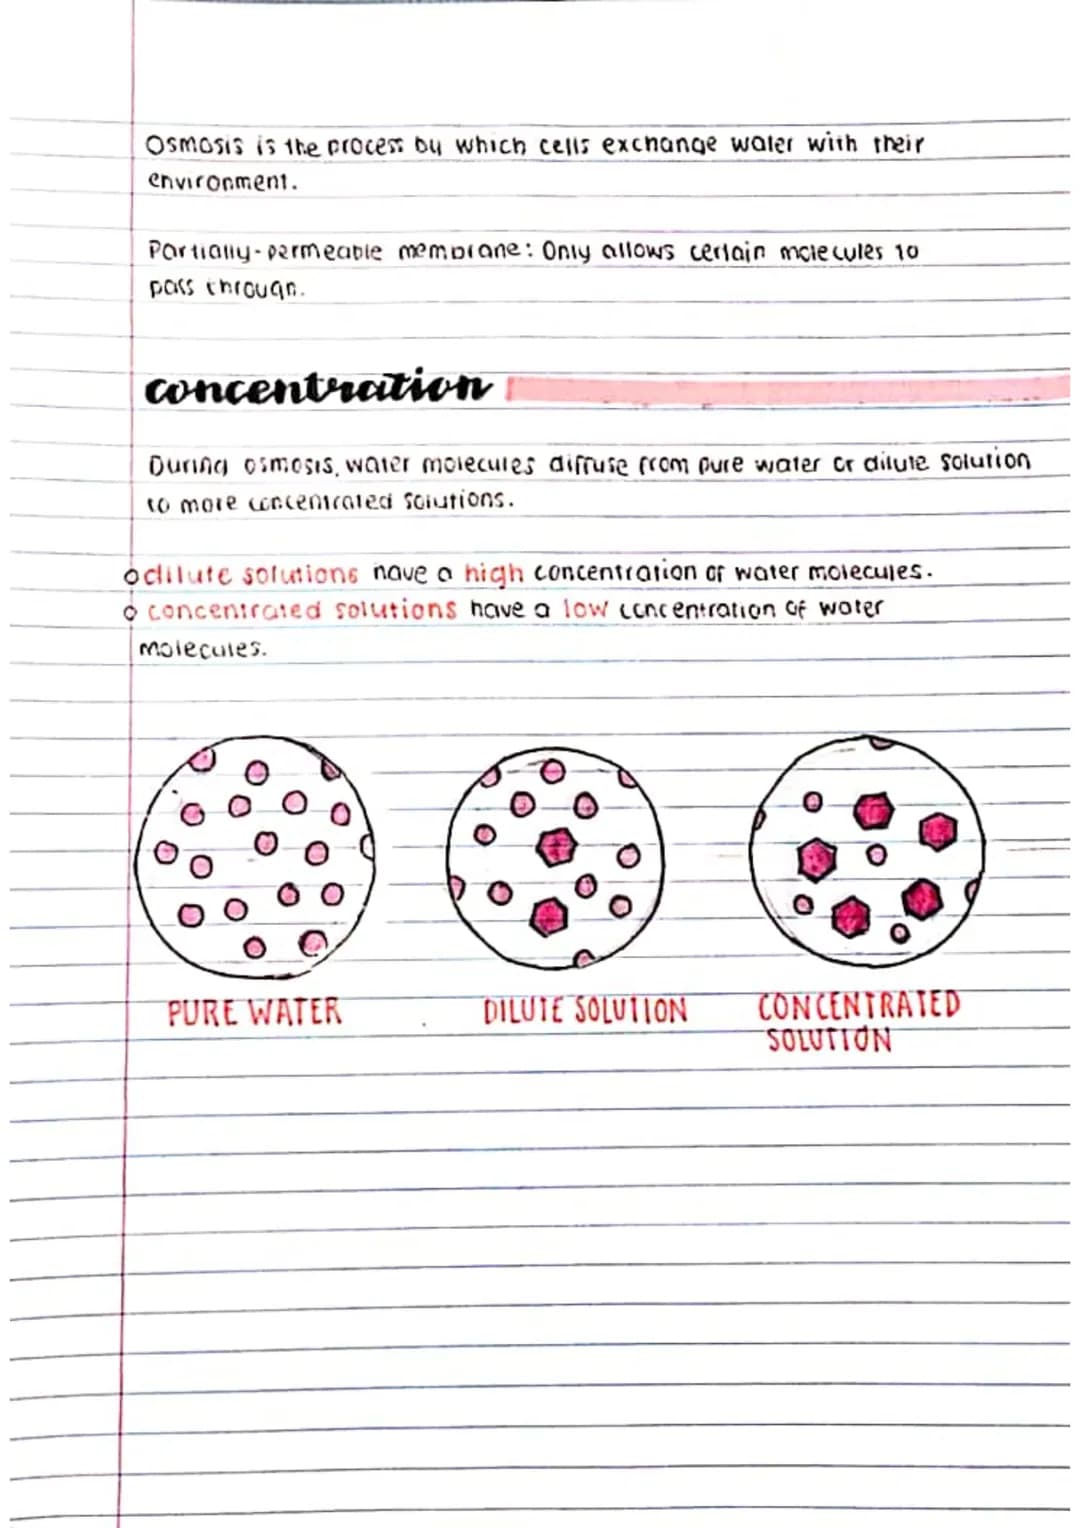 Osmosis is the process by which cells exchange water with their
environment.
Partially-permeable membrane: Only allows certain molecules to
pass through.
concentration
During osmosis, water molecules diffuse from pure water or dilute solution
to more concentrated solutions.
dilute solutions have a high concentration of water molecules.
concentrated solutions have a low concentration of water
molecules.
PURE WATER
DILUTE SOLUTION
CONCENTRATED
SOLUTION